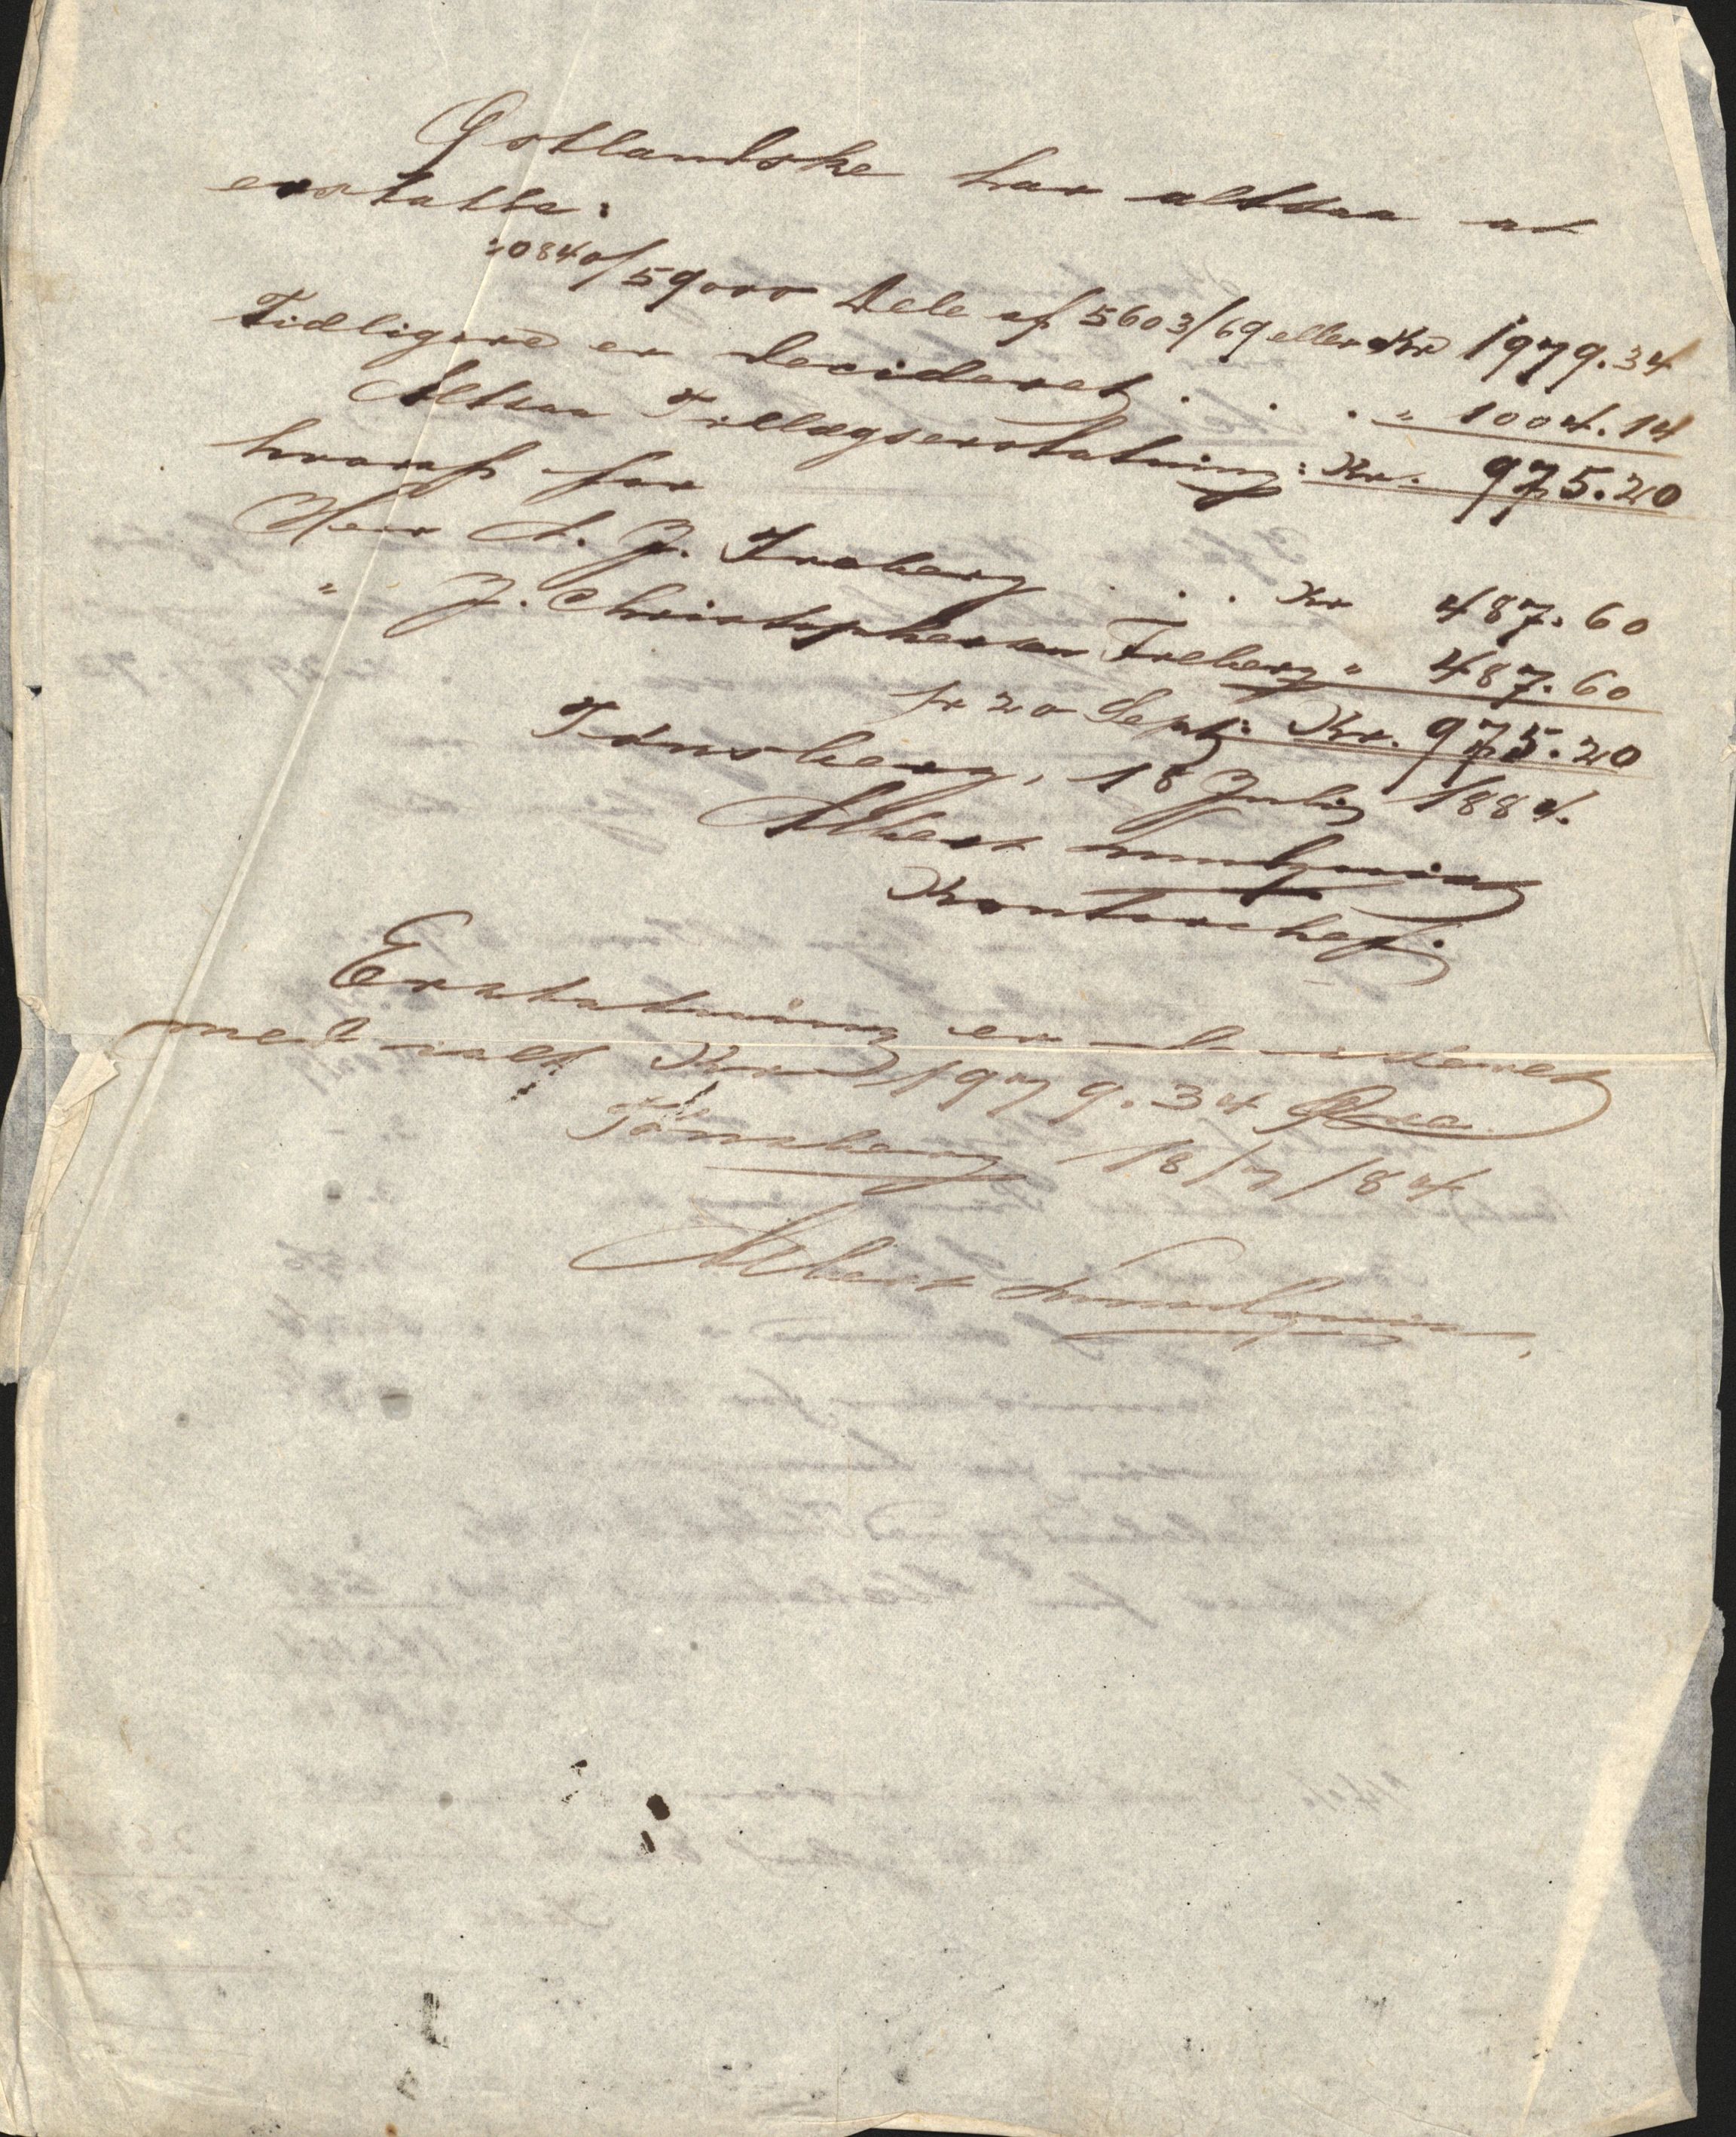 Østlandske har altsaa at
erstatte:
20840/59000 Dele af 5603/69 eller Kr 1979.34
Tidligere er decideret . . . " 1004.14
Altsaa Tillægserstatning: Kr. 975.20
hvoraf for
Herr A. J. Freberg . . . Kr 487.60
" J. Christophersen Freberg " 487.60
pr 20 Sept: Kr. 975.20
Tønsberg, 18 Juli 1884.
Albert
Kontorchef.
Erstatning er
med ialt Kr 1979.34 Øre.
Tønsberg 18/7/84
Albert